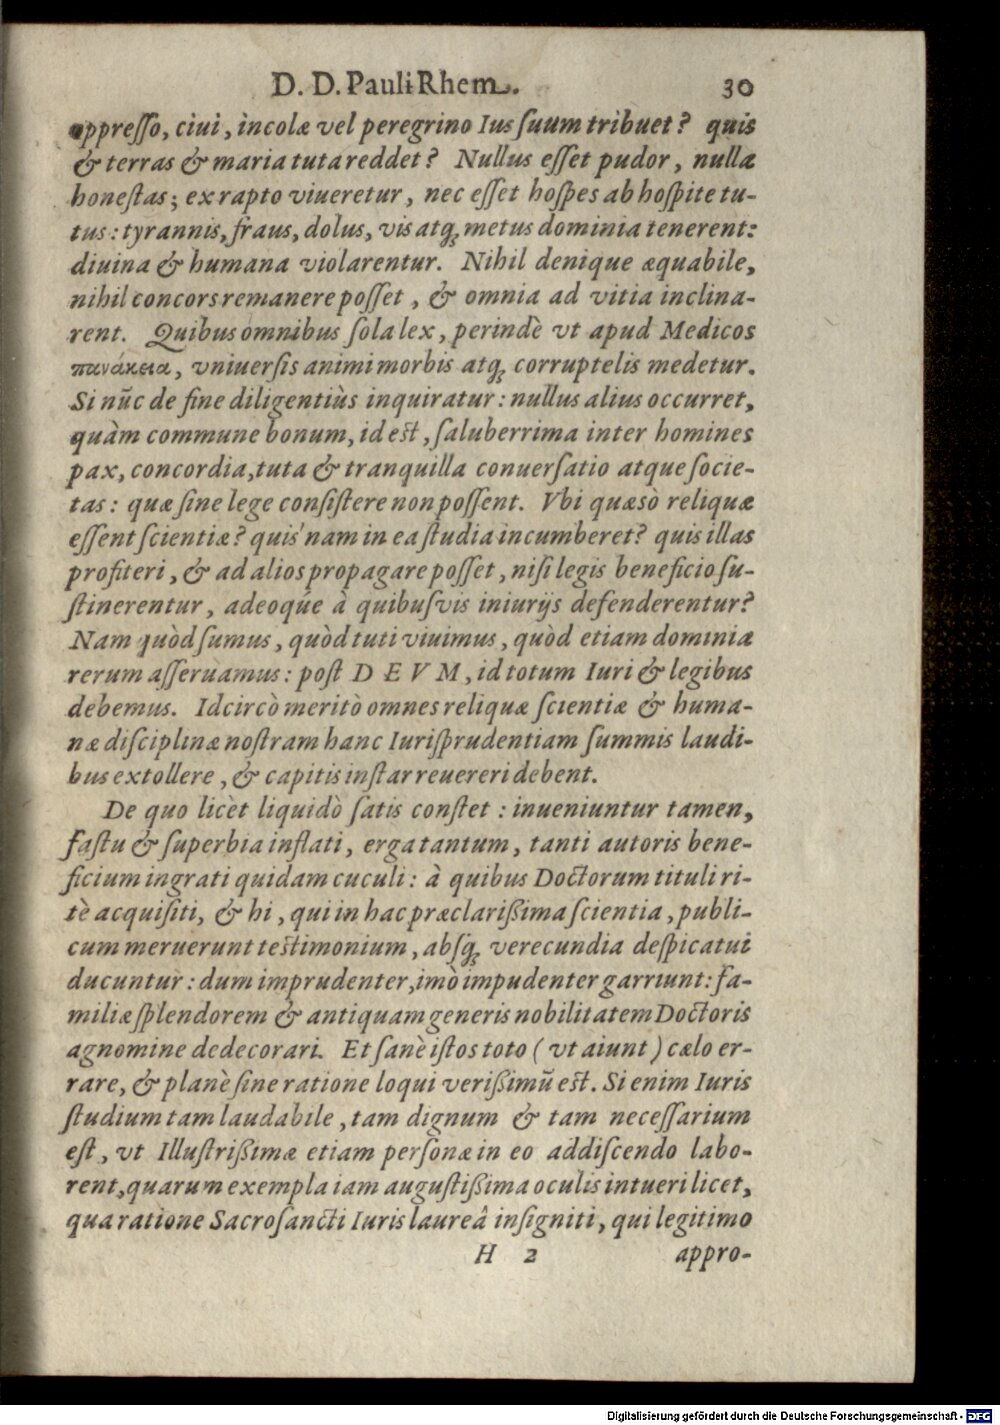 D. D. Pauli Rhem. 30
oppreſſo, ciui, incolæ vel peregrino Ius ſuum tribuet? quis
& terras & maria tuta reddet? Nullus eſſet pudor, nulla
honeſtas; ex rapto viueretur, nec eſſet hoſpes ab hoſpite tu-
tus: tyrannis, fraus, dolus, vis atq; metus dominia tenerent:
diuina & humana violarentur. Nihil denique æquabile,
nihil concors remanere poſſet, & omnia ad vitia inclina-
rent. Quibus omnibus ſola lex, perindè vt apud Medicos
πανάκεια, vniuerſis animi morbis atq; corruptelis medetur.
Si nũc de fine diligentiùs inquiratur: nullus alius occurret,
quàm commune bonum, id eſt, ſaluberrima inter homines
pax, concordia, tuta & tranquilla conuerſatio atque ſocie-
tas: quæ ſine lege conſiſtere non poſſent. Vbi quæſo reliquæ
eſſent ſcientiæ? quis'nam in ea ſtudia incumberet? quis illas
profiteri, & ad alios propagare poſſet, niſi legis beneficio ſu-
ſtinerentur, adeoqúe à quibuſvis iniurijs defenderentur?
Nam quòd ſumus, quòd tuti viuimus, quòd etiam dominia
rerum aſſeruamus: poſt D E V M, id totum Iuri & legibus
debemus. Idcircò meritò omnes reliquæ ſcientiæ & huma-
næ diſciplinæ noſtram hanc Iuriſprudentiam ſummis laudi-
bus extollere, & capitis inſtar reuereri debent.
De quo licèt liquidò ſatis conſtet: inueniuntur tamen,
faſtu & ſuperbia inflati, erga tantum, tanti autoris bene-
ficium ingrati quidam cuculi: à quibus Doctorum tituli ri-
tè acquiſiti, & hi, qui in hac præclariſſima ſcientia, publi-
cum meruerunt teſtimonium, abſq; verecundia deſpicatui
ducuntur: dum imprudenter, imò impudenter garriunt: fa-
miliæ ſplendorem & antiquam generis nobilitatem Doctoris
agnomine dedecorari. Et ſanè iſtos toto (vt aiunt) cælo er-
rare, & planè ſine ratione loqui veriſſimũ eſt. Si enim Iuris
ſtudium tam laudabile, tam dignum & tam neceſſarium
eſt, vt Illuſtriſſimæ etiam perſonæ in eo addiſcendo labo-
rent, quarum exempla iam auguſtiſſima oculis intueri licet,
qua ratione Sacroſancti Iuris laureâ inſigniti, qui legitimo
H 2 appro-
Digitalisierung gefördert durch die Deutsche Forschungsgemeinschaft - DFG